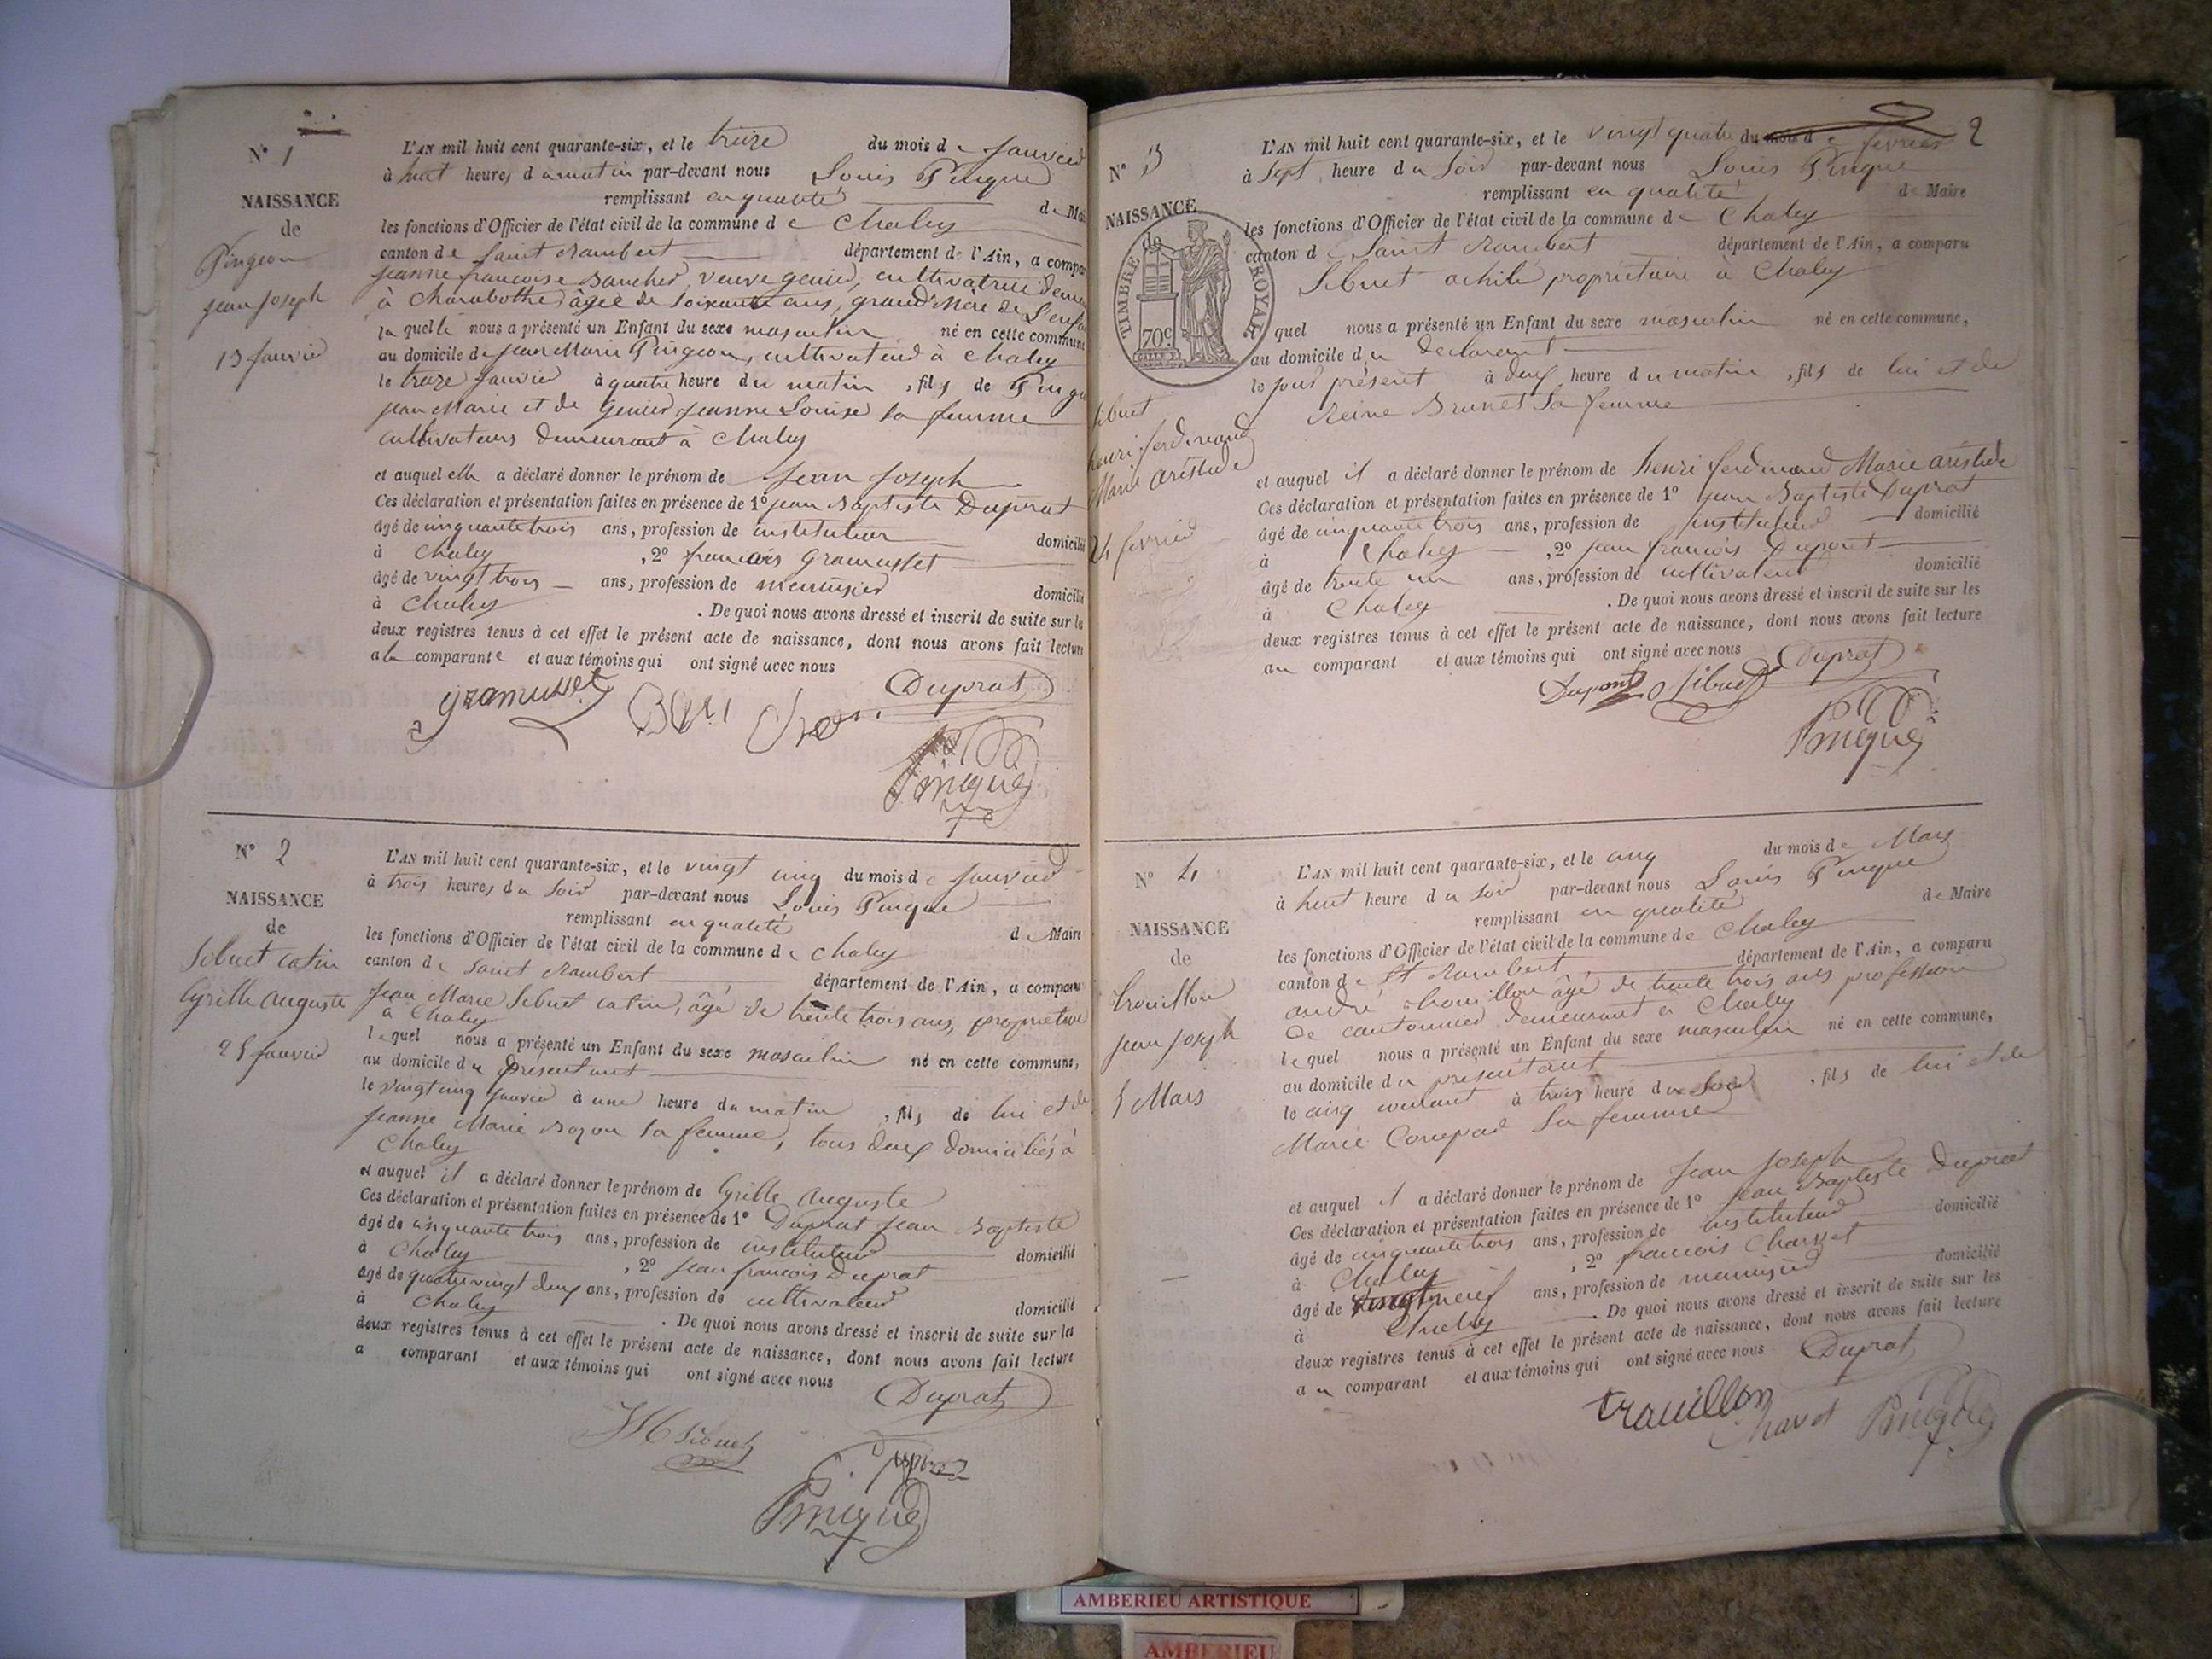 N° 1
NAISSANCE
de
Pingeon
jean joseph
13 janvier
L'AN mil huit cent quarante-six, et le treize du mois de janvier
à huit heures du matin par-devant nous Louis Pingue
remplissant en qualité de Mai
les fonctions d'Officier de l'état civil de la commune de Chaley
canton de Saint Rambert département de l'Ain, a compa
jeanne francoise Bancher, veuve genier, cultivatrice deme
à Charabothe, âgée de soixante ans, grand'Mere de L'enfa
la quelle nous a présenté un Enfant du sexe masculin né en cette commune
au domicile de jean Marie Pingeon, cultivateur à Chaley
le treize janvier à quatre heure du matin, fils de Pinge
jean Marie et de genier jeanne Louise sa femme
cultivateurs demeurant à Chaley
et auquel elle a déclaré donner le prénom de jean joseph
Ces déclaration et présentation faites en présence de 1° jean Baptiste Duprat
âgé de cinquante trois ans, profession de instituteur domicilié
à Chaley, 2° francois Gramusset
âgé de vingt trois ans, profession de menuisier domicilié
à Chaley. De quoi nous avons dressé et inscrit de suite sur le
deux registres tenus à cet effet le présent acte de naissance, dont nous avons fait lecture
a la comparante et aux témoins qui ont signé avec nous
gramusset Duprat
Pingue
N° 2
NAISSANCE
de
Sibuet catin
Cyrille auguste
25 janvier
L'AN mil huit cent quarante-six, et le vingt cinq du mois de janvier
à trois heures du soir par-devant nous Louis Pingue
remplissant en qualité de Maire
les fonctions d'Officier de l'état civil de la commune de Chaley
canton de Saint Rambert département de l'Ain, a comparu
jean Marie Sibuet catin, âgé de trente trois ans, proprietaire
a Chaley
lequel nous a présenté un Enfant du sexe masculin né en cette commune,
au domicile du présentant
le vingt cinq janvier à une heure du matin, fils de lui et de
jeanne Marie Bozon sa femme, tous deux domiciliés à
Chaley
et auquel il a déclaré donner le prénom de Cyrille auguste
Ces déclaration et présentation faites en présence de 1° Duprat jean Baptiste
âgé de cinquante trois ans, profession de instituteur domicilié
à Chaley, 2° jean francois Duprat
âgé de quatre vingt deux ans, profession de cultivateur domicilié
à Chaley. De quoi nous avons dressé et inscrit de suite sur les
deux registres tenus à cet effet le présent acte de naissance, dont nous avons fait lecture
a comparant et aux témoins qui ont signé avec nous
Duprat
JM Sibuet
Pingue
2
N° 3
NAISSANCE
de
TIMBRE ROYAL
70c
Sibuet
henri ferdinand
Marie aristide
24 fevrier
L'AN mil huit cent quarante-six, et le vingt quatre du mois de fevrier
à sept heure du soir par-devant nous Louis Pingue
remplissant en qualité de Maire
les fonctions d'Officier de l'état civil de la commune de Chaley
canton de Saint Rambert département de l'Ain, a comparu
Sibuet achile proprietaire à Chaley
quel nous a présenté un Enfant du sexe masculin né en cette commune,
au domicile du declarant
le jour présent à deux heure du matin, fils de lui et de
Reine Brunet sa femme
et auquel il a déclaré donner le prénom de henri ferdinand Marie aristide
Ces déclaration et présentation faites en présence de 1° jean Baptiste Duprat
âgé de cinquante trois ans, profession de instituteur domicilié
à Chaley, 2° jean francois Dupont
âgé de trente un ans, profession de cultivateur domicilié
à Chaley. De quoi nous avons dressé et inscrit de suite sur les
deux registres tenus à cet effet le présent acte de naissance, dont nous avons fait lecture
au comparant et aux témoins qui ont signé avec nous
Dupont Sibuet Duprat
Pingue
N° 4
NAISSANCE
de
trouillon
jean joseph
5 Mars
L'AN mil huit cent quarante-six, et le cinq du mois de Mars
à huit heure du soir par-devant nous Louis Pingue
remplissant en qualité de Maire
les fonctions d'Officier de l'état civil de la commune de Chaley
canton de St Rambert département de l'Ain, a comparu
andré trouillon âgé de trente trois ans profession
de cantonnier demeurant à Chaley
lequel nous a présenté un Enfant du sexe masculin né en cette commune,
au domicile du présentant
le cinq courant à trois heure du soir, fils de lui et de
Marie sa femme
et auquel il a déclaré donner le prénom de jean joseph
Ces déclaration et présentation faites en présence de 1° jean Baptiste Duprat
âgé de cinquante trois ans, profession de instituteur domicilié
à Chaley, 2° francois Charvet
âgé de vingt neuf ans, profession de menuisier domicilié
à Chaley. De quoi nous avons dressé et inscrit de suite sur les
deux registres tenus à cet effet le présent acte de naissance, dont nous avons fait lecture
au comparant et aux témoins qui ont signé avec nous Duprat
trouillon
Pingue
AMBERIEU ARTISTIQUE
AMBERIEU